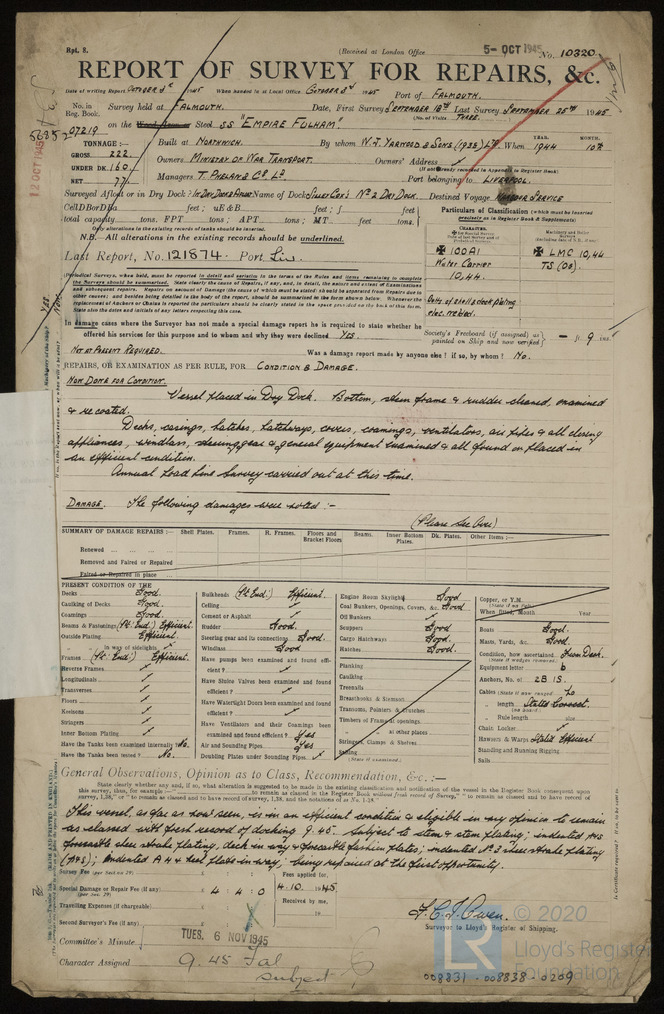 Rpt. 8.
(Received at London Office 5- OCT 1945 No. 10320
REPORT OF SURVEY FOR REPAIRS, &c.
Date of writing Report October 3rd 1945 When handed in at Local Office October 3rd 1945 Port of FALMOUTH.
No. in Reg. Book. Survey held at FALMOUTH. Date, First Survey SEPTEMBER 18TH Last Survey SEPTEMBER 25TH 1945
(No. of Visits THREE.
07219 on the Steel SS "EMPIRE FULHAM."
12 OCT 1945
TONNAGE:— Built at NORTHWICH. By whom W. J. YARWOOD & SONS (1938) LTD. When 1944 YEAR. MONTH. 10TH
GROSS 222. Owners MINISTRY OF WAR TRANSPORT. Owners' Address
UNDER DK. 160. (If not already recorded in Appendix to Register Book.)
NET 77. Managers T. PHELAN & CO. LD. Port belonging to LIVERPOOL.
Surveyed Afloat or in Dry Dock? Name of Dock SILLEY COX'S No 2 DRY DOCK. Destined Voyage HARBOUR SERVICE
Cell DB or DBa feet; uE&B. feet; f feet
total capacity tons. FPT tons; APT tons; MT feet tons.
Only alterations in the existing records of tanks should be inserted.
N.B.—All alterations in the existing records should be underlined.
Particulars of Classification (which must be inserted precisely as in Register Book & Supplements)
✠ 100A1 ✠ LMC 10,44
Water Carrier TS (OG).
10,44.
Butts of shell & deck plating elec. welded.
Last Report, No. 121874. Port Liv.
In damage cases where the Surveyor has not made a special damage report he is required to state whether he
offered his services for this purpose and to whom and why they were declined YES
Society's Freeboard (if assigned) as painted on Ship and now verified — ft. 9 ins
NOT AT PRESENT REQUIRED.
Was a damage report made by anyone else? if so, by whom? No.
REPAIRS, OR EXAMINATION AS PER RULE, FOR CONDITION & DAMAGE.
NOW DONE FOR CONDITION.
Vessel placed in Dry Dock. Bottom, stem frame & rudder cleaned, examined
& recoated.
Decks, casings, hatches, hatchways, covers, coamings, ventilators, air pipes & all closing
appliances, windlass, steering gear & general equipment examined & all found or placed in
an efficient condition.
Annual Load Line Survey carried out at this time.
DAMAGE. The following damages were noted :-
(Please See Over)
SUMMARY OF DAMAGE REPAIRS:— Shell Plates. Frames. R. Frames. Floors and Bracket Floors Beams. Inner Bottom Plates. Dk. Plates. Other Items:—
Renewed
Removed and Faired or Repaired
Faired or Repaired in place
PRESENT CONDITION OF THE
Decks Good.
Caulking of Decks Good.
Coamings Good.
Beams & Fastenings (Pt. End.) Efficient.
Outside Plating Efficient.
" in way of sidelights
Frames (Pt. End.) Efficient.
Reverse Frames
Longitudinals
Transverses
Floors
Keelsons
Stringers
Inner Bottom Plating
Have the Tanks been examined internally? No.
Have the Tanks been tested? No.
Bulkheads (Pt. End.) Efficient.
Ceiling
Cement or Asphalt
Rudder Good.
Steering gear and its connections Good.
Windlass Good
Have pumps been examined and found efficient?
Have Sluice Valves been examined and found efficient?
Have Watertight Doors been examined and found efficient?
Have Ventilators and their Coamings been examined and found efficient? Yes
Air and Sounding Pipes Yes
Doubling Plates under Sounding Pipes
Engine Room Skylight Good.
Coal Bunkers, Openings, Covers, &c. Good.
Oil Bunkers
Scuppers Good.
Cargo Hatchways Good.
Hatches Good.
Planking
Caulking
Treenails
Breasthooks & Stemson
Transoms, Pointers & Crutches
Timbers of Frame at openings.
" " at other places
Stringers, Clamps & Shelves
Salting
(State if examined.)
Copper, or Y.M.
When fitted, Month Year
Boats Good.
Masts, Yards, &c. Good.
Condition, how ascertained From Deck.
(State if wedges removed)
Equipment letter b
Anchors, No. of 2B 1S.
Cables (State if now ranged) No
" length Stated Correct.
" Rule length size
Chain Locker
Hawsers & Warps Stated Efficient
Standing and Running Rigging
Sails
General Observations, Opinion as to Class, Recommendation, &c.:—
This vessel, as far as now seen, is in an efficient condition & eligible in my opinion to remain
as classed with fresh record of docking 9.45. Subject to stem & stem plating; indented P&S
forecastle sheer strake plating, deck in way & forecastle fashion plates; indented No 3 sheer strake plating
(P&S); indented A 4 & keel plate in way; being repaired at the first opportunity.
Survey Fee (per Section 29) £ : : Fees applied for,
Special Damage or Repair Fee (if any) (per Sec. 29) £ 4 : 4 : 0 4.10.1945
Travelling Expenses (if chargeable) £ : : Received by me,
Second Surveyor's Fee (if any) £ : : 19
G. C. J. Owen.
Surveyor to Lloyd's Register of Shipping.
Committee's Minute TUES. 6 NOV 1945
Character Assigned 9.45 Fal
subject
© 2020
LR Lloyd's Register Foundation
008831 - 008838 - 0209